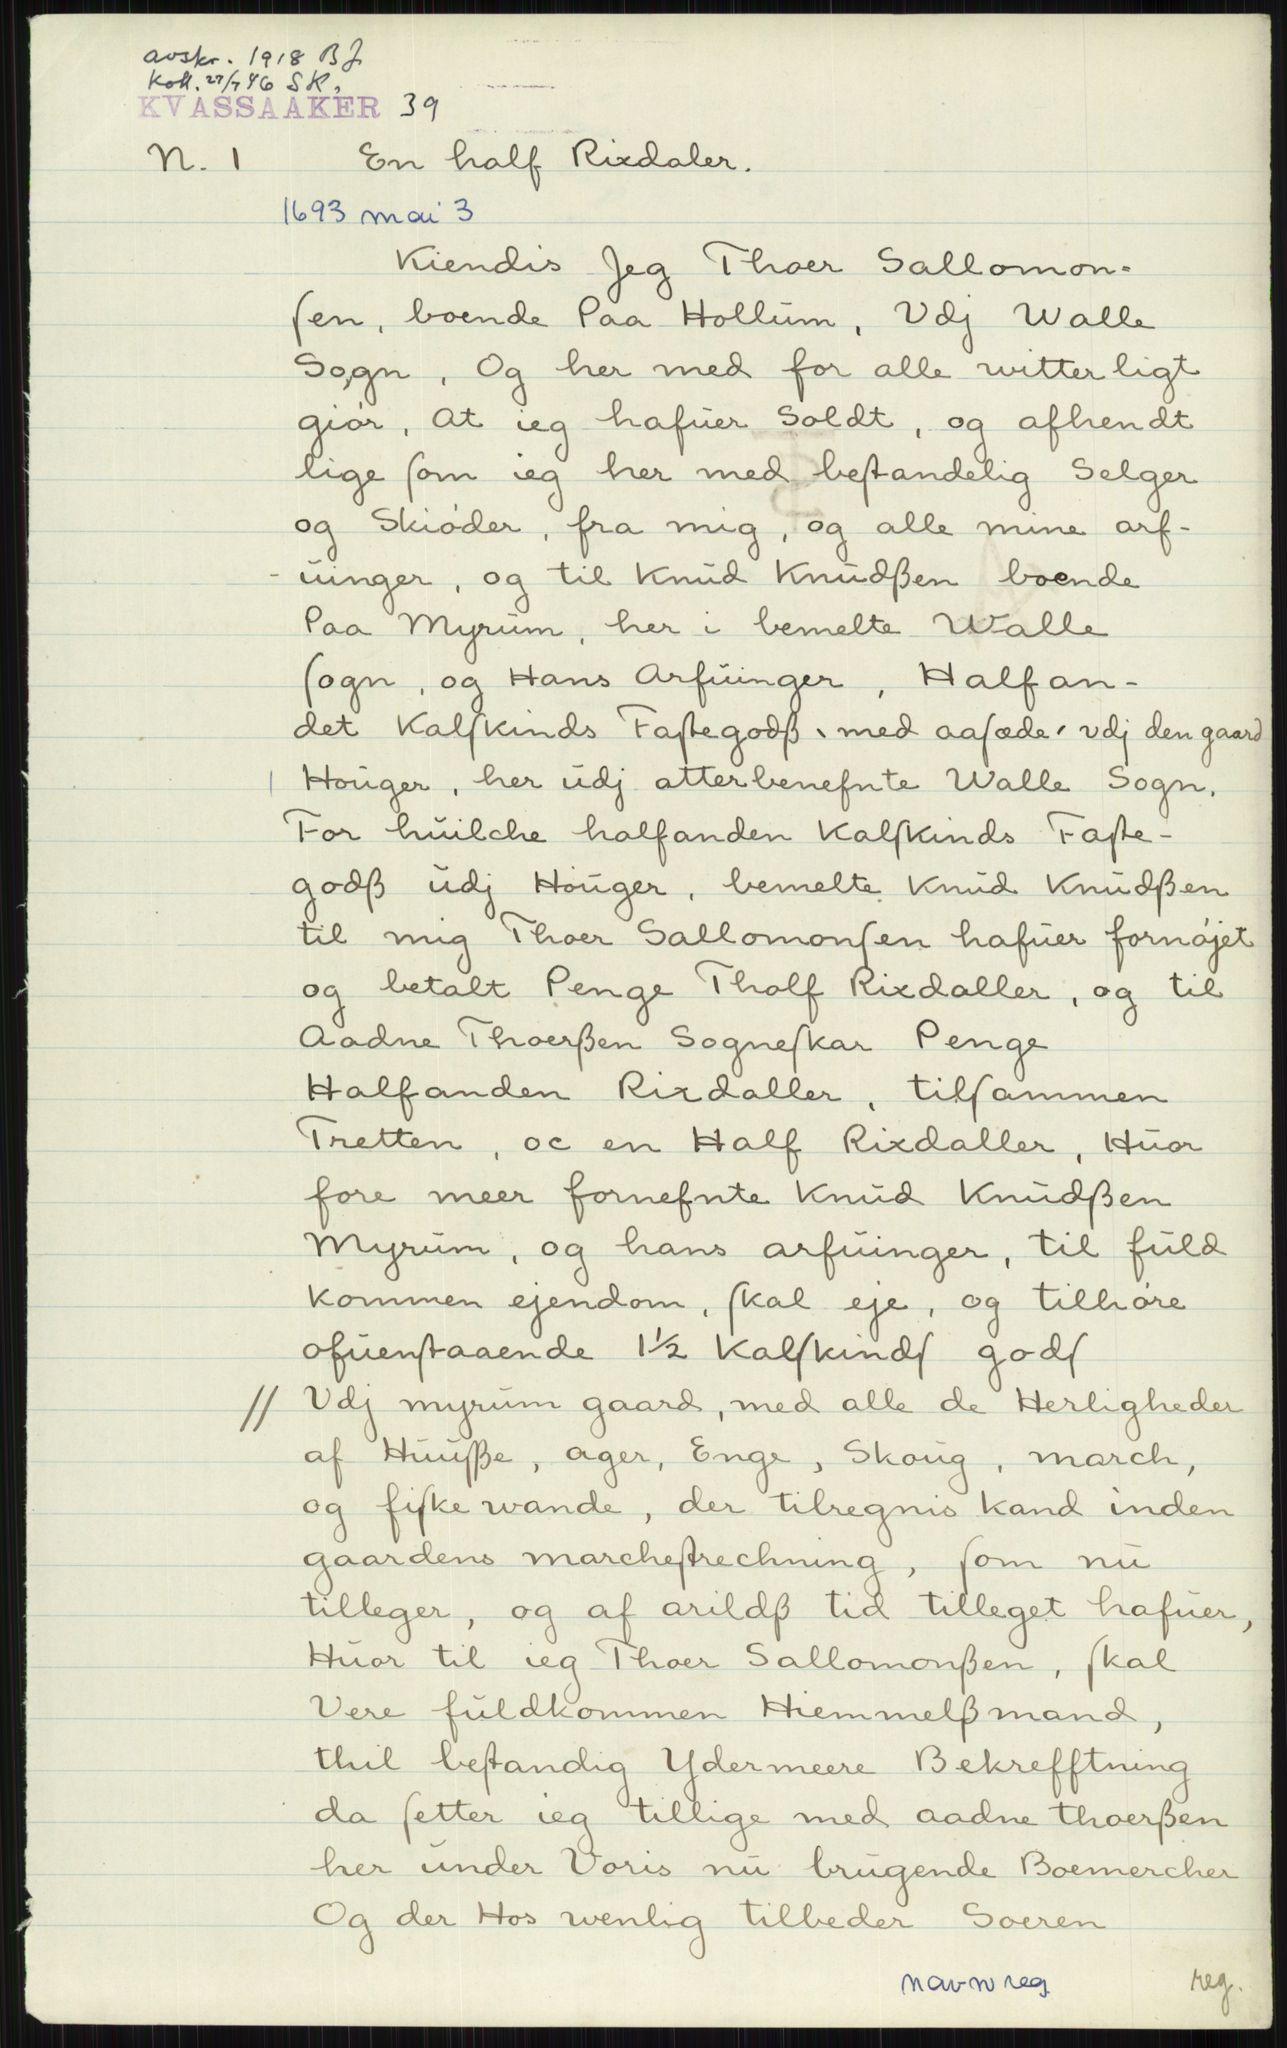 avskr. 1918 BJ
Koll. 27/7 46 SK.
KVASSAAKER 39
N. 1 En half Rixdaler.
1693 mai 3
Kiendis Jeg Thoer Sallomon-
ſen, boende Paa Hollum, Vdj Walle
Sogn, Og her med for alle witterligt
giör, At ieg hafuer Soldt, og afhendt
lige ſom ieg her med beſtandelig Selger
og Skiöder, fra mig, og alle mine arf-
-uinger, og til Knud Knudßen boende
Paa Myrum, her i bemelte Walle
ſogn, og Hans Arfuinger, Halfan-
det Kalſkinds Faſtegodß, med aaſæde, vdj den gaard
Houger, her udj atterbenefnte Walle Sogn.
For huilche halfanden Kalſkinds Faſte-
godß udj Houger, bemelte Knud Knudßen
til mig Thoer Sallomonſen hafuer fornöjet
og betalt Penge Tholf Rixdaller, og til
Aadne Thoerßen Sogneſkar Penge
Halfanden Rixdaller, tilſammen
Tretten, oc en Half Rixdaller, Huor
fore meer fornefnte Knud Knudßen
Myrum, og hans arfuinger, til fuld
kommen ejendom, ſkal eje, og tilhöre
ofuenſtaaende 1½ Kalſkindſ godſ
// Vdj myrum gaard, med alle de Herligheder
af Huuſße, ager, Enge, Skoug, march,
og fiſke wande, der tilregnis kand inden
gaardens marcheſtrechning, ſom nu
tilleger, og af arildß tid tilleget hafuer,
Huor til ieg Thoer Sallomonßen, ſkal
Vere fuldkommen Hiemmelßmand,
thil beſtandig Ydermeere Bekrefftning
da ſetter ieg tillige med aadne thoerßen
her under Voris nu brugende Boemercher
Og der Hos wenlig tilbeder Soeren
navnreg reg.